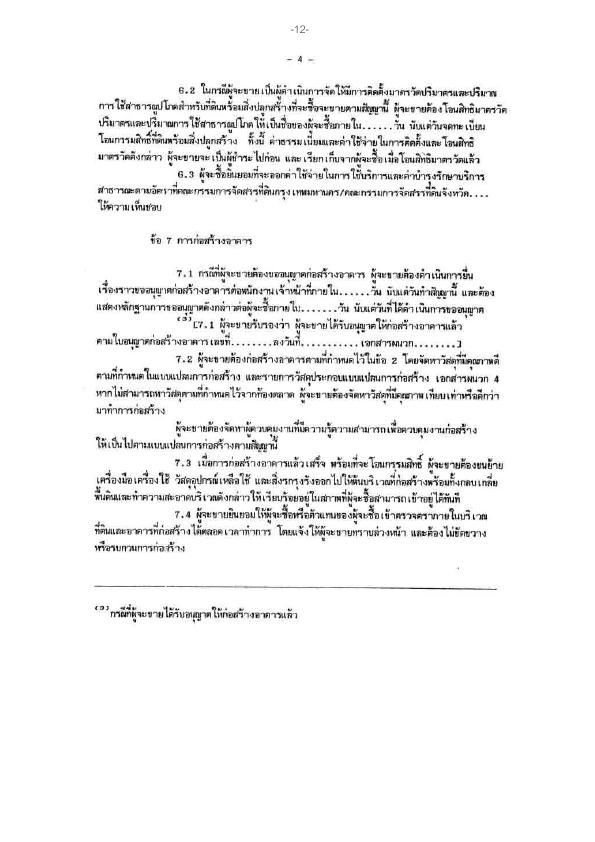 -12-
- 4 -
6.2 ในกรณีผู้จะขายเป็นผู้ดำเนินการจัดให้มีการติดตั้งมาตรวัดปริมาตรและปริมาณ
การใช้สาธารณูปโภคสำหรับที่ดินพร้อมสิ่งปลูกสร้างที่จะซื้อจะขายตามสัญญานี้ ผู้จะขายต้องโอนสิทธิมาตรวัด
ปริมาตรและปริมาณการใช้สาธารณูปโภคให้เป็นชื่อของผู้จะซื้อภายใน......วัน นับแต่วันจดทะเบียน
โอนกรรมสิทธิ์ที่ดินพร้อมสิ่งปลูกสร้าง ทั้งนี้ ค่าธรรมเนียมและค่าใช้จ่ายในการติดตั้งและโอนสิทธิ
มาตรวัดดังกล่าว ผู้จะขายจะเป็นผู้ชำระไปก่อน และเรียกเก็บจากผู้จะซื้อเมื่อโอนสิทธิมาตรวัดแล้ว
6.3 ผู้จะซื้อยินยอมที่จะออกค่าใช้จ่ายในการใช้บริการและค่าบำรุงรักษาบริการ
สาธารณะตามอัตราที่คณะกรรมการจัดสรรที่ดินกรุงเทพมหานคร/คณะกรรมการจัดสรรที่ดินจังหวัด....
ให้ความเห็นชอบ
ข้อ 7 การก่อสร้างอาคาร
7.1 กรณีที่ผู้จะขายต้องขออนุญาตก่อสร้างอาคาร ผู้จะขายต้องดำเนินการยื่น
เรื่องราวขออนุญาตก่อสร้างอาคารต่อพนักงานเจ้าหน้าที่ภายใน......วัน นับแต่วันทำสัญญานี้ และต้อง
แสดงหลักฐานการขออนุญาตดังกล่าวต่อผู้จะซื้อภายใน.......วัน นับแต่วันที่ได้ดำเนินการขออนุญาต
(3)[7.1 ผู้จะขายรับรองว่า ผู้จะขายได้รับอนุญาตให้ก่อสร้างอาคารแล้ว
ตามใบอนุญาตก่อสร้างอาคารเลขที่........ลงวันที่...........เอกสารผนวก........]
7.2 ผู้จะขายต้องก่อสร้างอาคารตามที่กำหนดไว้ในข้อ 2 โดยจัดหาวัสดุที่มีคุณภาพดี
ตามที่กำหนดในแบบแปลนการก่อสร้าง และรายการวัสดุประกอบแบบแปลนการก่อสร้าง เอกสารผนวก 4
หากไม่สามารถหาวัสดุตามที่กำหนดไว้จากท้องตลาด ผู้จะขายต้องจัดหาวัสดุที่มีคุณภาพเทียบเท่าหรือดีกว่า
มาทำการก่อสร้าง
ผู้จะขายต้องจัดหาผู้ควบคุมงานที่มีความรู้ความสามารถเพื่อควบคุมงานก่อสร้าง
ให้เป็นไปตามแบบแปลนการก่อสร้างตามสัญญานี้
7.3 เมื่อการก่อสร้างอาคารแล้วเสร็จ พร้อมที่จะโอนกรรมสิทธิ์ ผู้จะขายต้องขนย้าย
เครื่องมือเครื่องใช้ วัสดุอุปกรณ์เหลือใช้ และสิ่งรกรุงรังออกไปให้พ้นบริเวณที่ก่อสร้างพร้อมทั้งกลบเกลี่ย
พื้นดินและทำความสะอาดบริเวณดังกล่าวให้เรียบร้อยอยู่ในสภาพที่ผู้จะซื้อสามารถเข้าอยู่ได้ทันที
7.4 ผู้จะขายยินยอมให้ผู้จะซื้อหรือตัวแทนของผู้จะซื้อเข้าตรวจตราภายในบริเวณ
ที่ดินและอาคารที่ก่อสร้างได้ตลอดเวลาทำการ โดยแจ้งให้ผู้จะขายทราบล่วงหน้า และต้องไม่ขัดขวาง
หรือรบกวนการก่อสร้าง
(3) กรณีที่ผู้จะขายได้รับอนุญาตให้ก่อสร้างอาคารแล้ว